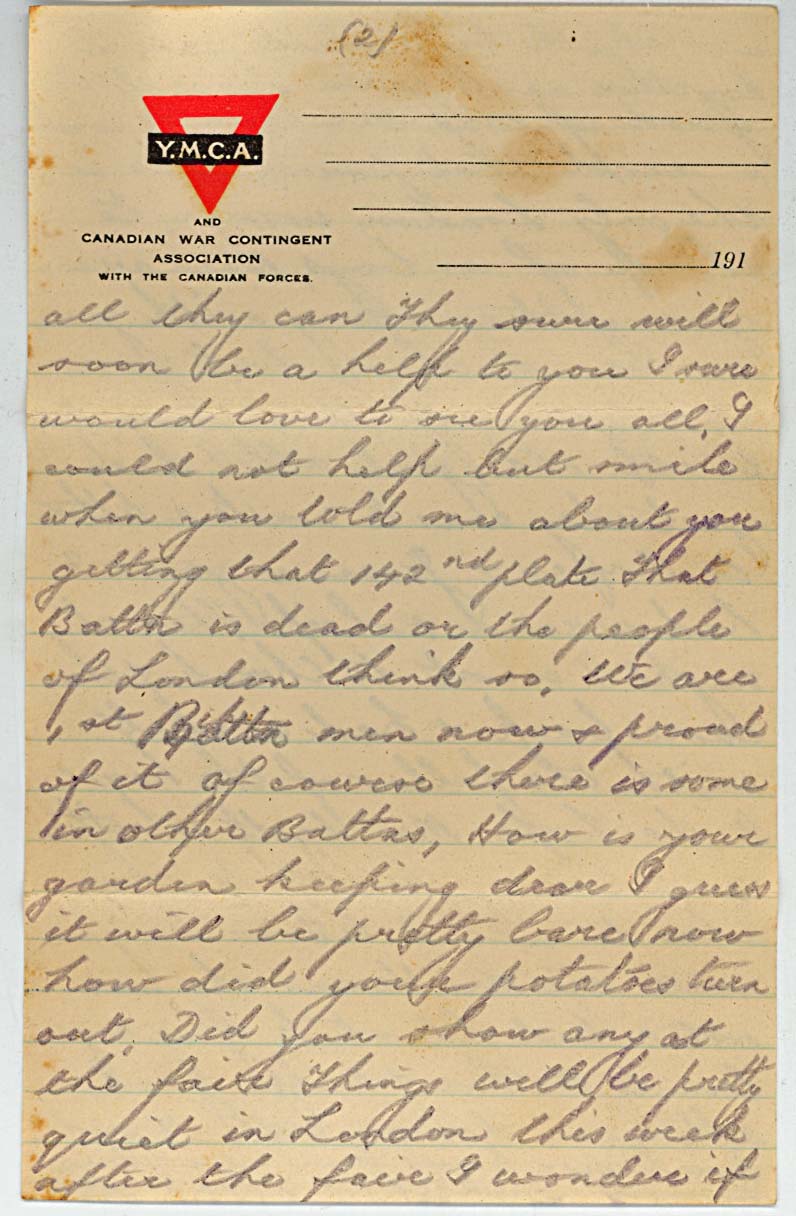 (2)
Y.M.C.A.
AND
CANADIAN WAR CONTINGENT
ASSOCIATION
WITH THE CANADIAN FORCES.
191
all they can They sure will
soon be a help to you I sure
would love to see you all, I
could not help but smile
when you told me about you
getting that 142nd plate That
Battn is dead or the people
of London think so, We are
1st Battn men now & proud
of it of cowerse there is some
in other Battns, How is your
garden keeping dear I guess
it will be pretty bare now
how did your potatoes turn
out, Did you show any at
the fair Things will be pretty
quiet in London this week
after the fair I wonder if